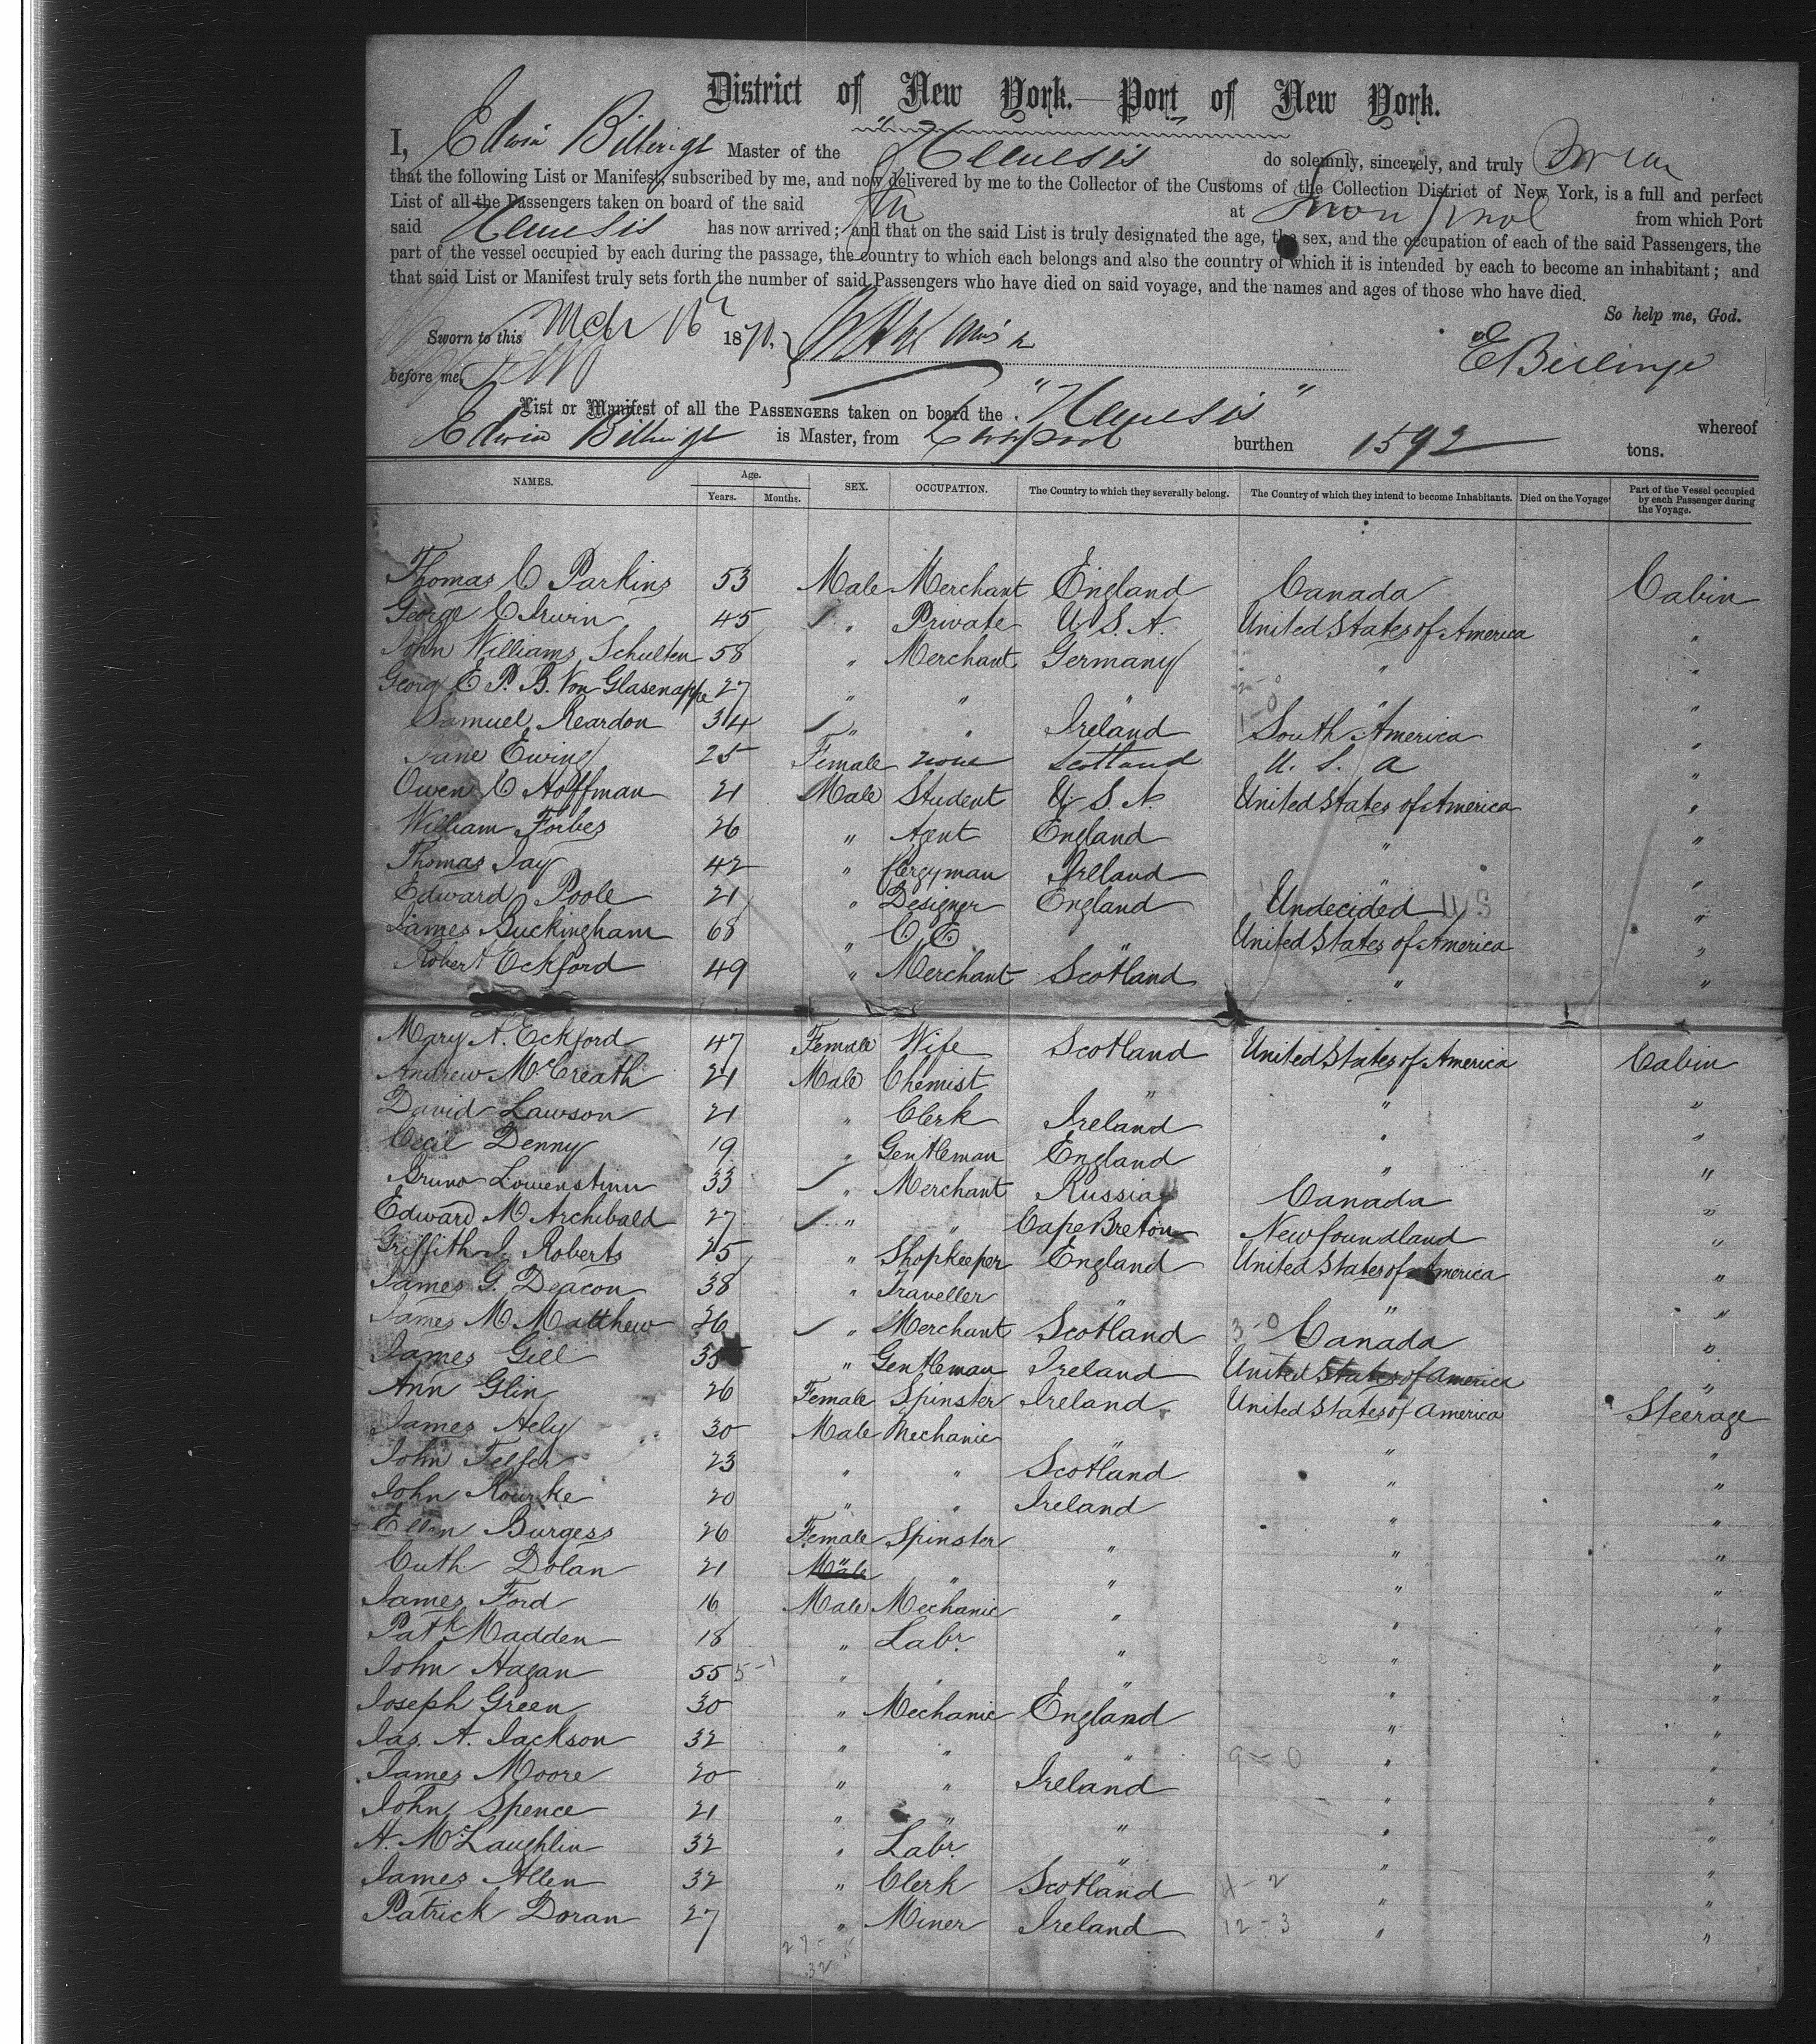 District of New York.—Port of New York.
I, Edwin Billinge Master of the "Nemesis" do solemnly, sincerely, and truly swear
that the following List or Manifest, subscribed by me, and now delivered by me to the Collector of the Customs of the Collection District of New York, is a full and perfect
List of all the Passengers taken on board of the said at from which Port
said Nemesis has now arrived; and that on the said List is truly designated the age, the sex, and the occupation of each of the said Passengers, the
part of the vessel occupied by each during the passage, the country to which each belongs and also the country of which it is intended by each to become an inhabitant; and
that said List or Manifest truly sets forth the number of said Passengers who have died on said voyage, and the names and ages of those who have died.
So help me, God.
Sworn to this Mch 16 1870,
before me, E Billinge
List or Manifest of all the PASSENGERS taken on board the "Nemesis" whereof
Edwin Billinge is Master, from Liverpool burthen 1592 tons.
NAMES. Age. Years. Months. SEX. OCCUPATION. The Country to which they severally belong. The Country of which they intend to become Inhabitants. Died on the Voyage Part of the Vessel occupied by each Passenger during the Voyage.
Thomas C Parkins 53 Male Merchant England Canada Cabin
George C Irwin 45 " Private U.S.A. United States of America "
John Williams Schulten 58 " Merchant Germany " "
Georg E. P. B. Von Glasenappe 27 " " " " "
Samuel Reardon 34 " " Ireland South America "
Jane Ewing 25 Female none Scotland U. S. a "
Owen C Hoffman 21 Male Student U.S.A. United States of America "
William Forbes 26 " Agent England " "
Thomas Jay 42 " Clergyman Ireland " "
Edward Poole 21 " Designer England Undecided U S "
James Buckingham 68 " C. E. " United States of America "
Robert Eckford 49 " Merchant Scotland " "
Mary A. Eckford 47 Female Wife Scotland United States of America Cabin
Andrew McCreath 21 Male Chemist " " "
David Lawson 21 " Clerk Ireland " "
Cecil Denny 19 " Gentleman England " "
Bruno Lowenstinn 33 " Merchant Russia Canada "
Edward M Archibald 27 " " Cape Breton Newfoundland "
Griffith J. Roberts 25 " Shopkeeper England United States of America "
James G. Deacon 38 " Traveller " " "
James M Matthew 26 " Merchant Scotland 3-0 Canada "
James Gill 35 " Gentleman Ireland United States of America "
Ann Glin 26 Female Spinster Ireland United States of America Steerage
James Hely 30 Male Mechanic " " "
John Telfer 23 " " Scotland " "
John Rourke 20 " " Ireland " "
Ellen Burgess 26 Female Spinster " " "
Cath Dolan 21 " " " " "
James Ford 16 Male Mechanic " " "
Patk Madden 18 " Labr. " " "
John Hagan 55 5-1 " " " " "
Joseph Green 30 " Mechanic England " "
Jas. A. Jackson 32 " " " 9-0 " "
James Moore 20 " " Ireland " "
John Spence 21 " " " " "
H. McLaughlin 32 " Labr. " " "
James Allen 32 " Clerk Scotland " "
Patrick Doran 27 " Miner Ireland 12-3 " "
27-
32